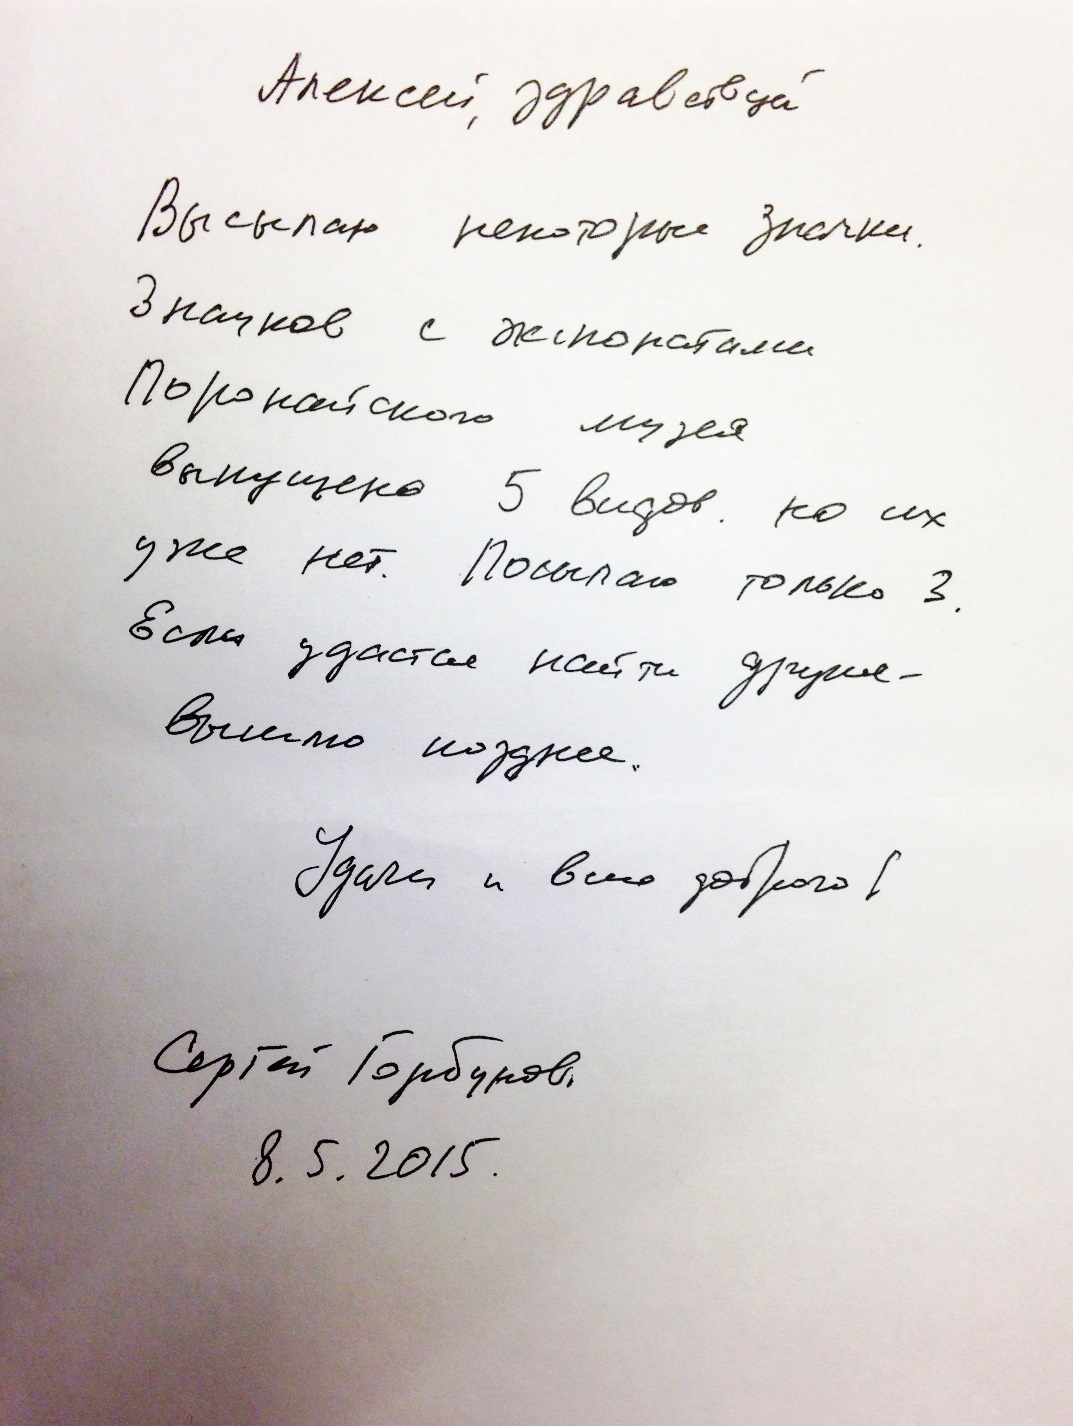 Алексей, здравствуй
Высылаю некоторые значки.
Значков с экспонатами
Поронайского музея
выпущено 5 видов. но их
уже нет. Посылаю только 3.
Если удастся найти другие-
вышлю позднее.
Удачи и всего доброго!
Сергей Горбунов.
8.5.2015.